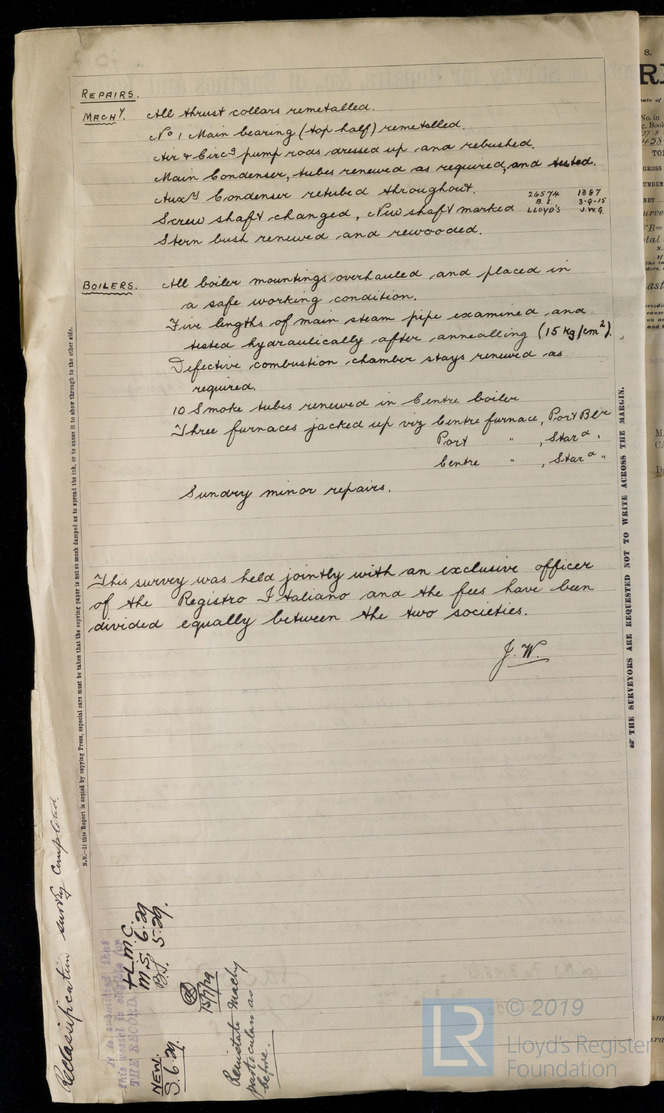 REPAIRS.
MACHY. All thrust collars remetalled.
No 1 Main bearing (top half) remetalled.
Air & Circg pump rods dressed up and rebushed.
Main Condenser, tubes renewed as required, and tested.
Auxy Condenser retubed throughout.
Screw shaft changed, New shaft marked
26574 1387
B.I. 3-9-15
LLOYD'S J.W.G.
Stern bush renewed and rewooded.
BOILERS. All boiler mountings overhauled and placed in
a safe working condition.
Five lengths of main steam pipe examined and
tested hydraulically after annealling (15 kg/cm²).
Defective combustion chamber stays renewed as
required.
10 Smoke tubes renewed in Centre boiler
Three furnaces jacked up viz Centre furnace, Port Blr
Port " , Stard "
Centre " , Stard "
Sundry minor repairs.
This survey was held jointly with an exclusive officer
of the Registro Italiano and the fees have been
divided equally between the two societies.
J. W.
N.B.—If this Report is copied by copying Press, especial care must be taken that the copying paper is not so much damped as to spread the ink, or to cause it to show through to the other side.
THE SURVEYORS ARE REQUESTED NOT TO WRITE ACROSS THE MARGIN.
Reclassification survey completed
It is submitted that
this vessel is eligible for
THE RECORD.
+L.M.C.
M.S. 6.29
B.S. 5.29.
NEW.
S. 6.29.
15/7/29
Reinstate Machy
particulars as
before.
LR
© 2019
Lloyd's Register
Foundation